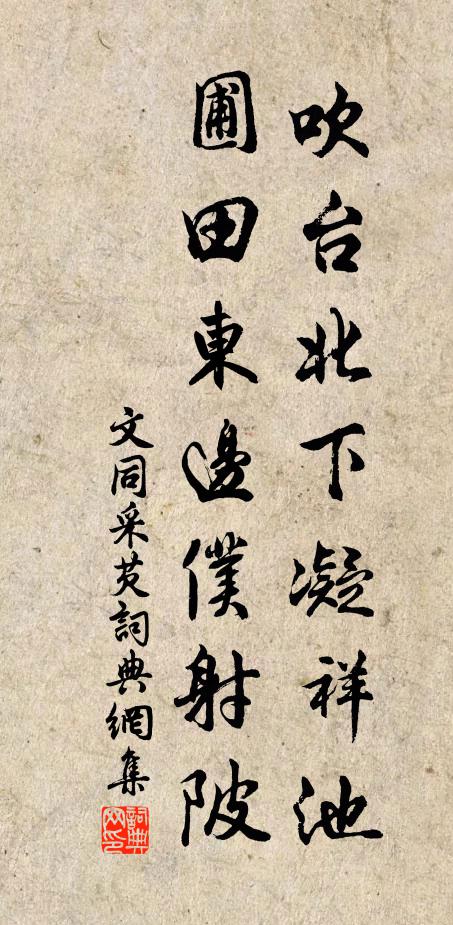 吹台北下凝祥池
圃田東邊僕射陂
文同采芡詞典網集
詞典网印